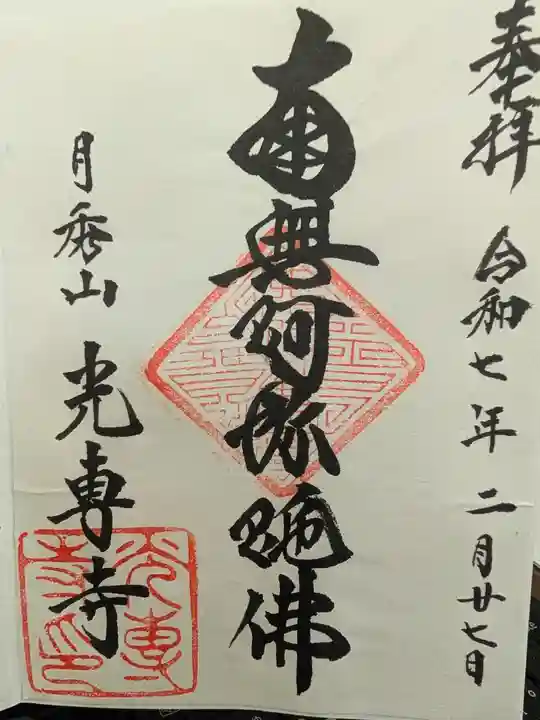 奉拝
令和七年二月廿七日
南無阿弥陀佛
月秀山
光専寺
光專寺印